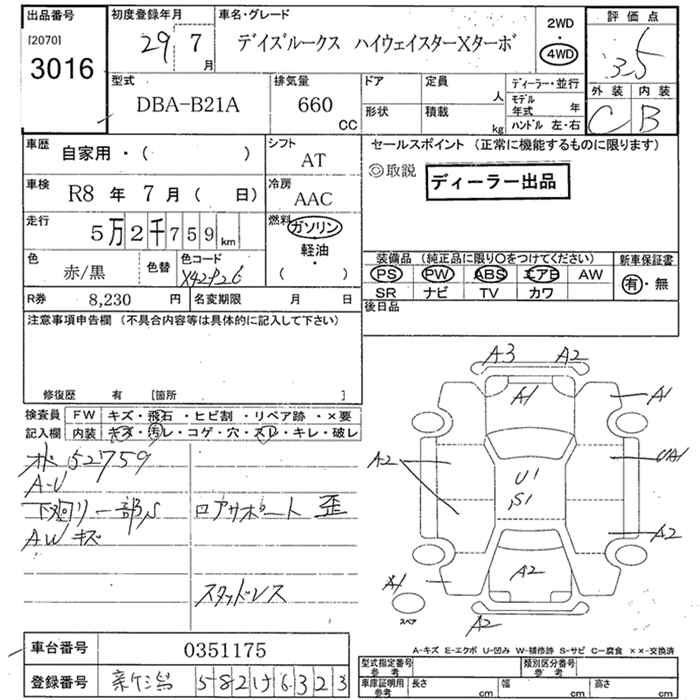 出品番号
[2070]
3016
初度登録年月
29年 7月
車名・グレード
デイズルークス ハイウェイスターXターボ
2WD
・
4WD
評価点
3.5
外装 内装
C B
型式
DBA-B21A
排気量
660
CC
ドア
形状
定員
人
積載
kg
ディーラー・並行
モデル年式 年
ハンドル 左・右
車歴
自家用・( )
シフト
AT
車検
R8 年 7 月( 日)
冷房
AAC
走行
5万2千759km
燃料
ガソリン
軽油
・
( )
色
赤/黒
色替
色コード
R券 8,230 円
名変期限 月 日
セールスポイント (正常に機能するものに限ります)
◎取説
ディーラー出品
装備品 (純正品に限り○をつけてください)
PS PW ABS エアB AW
SR ナビ TV カワ
新車保証書
有・無
後日品
注意事項申告欄 (不具合内容等は具体的に記入して下さい)
修復歴 有 [箇所 ]
検査員 FW キズ・飛石・ヒビ割・リペア跡・×要
記入欄 内装 キズ・汚レ・コゲ・穴・スレ・キレ・破レ
52759
A-U
下廻り一部S
ロアサポート 歪
AWキズ
スタッドレス
A3 A2
A1 A1
A2 U1 S1 UA1
A2
A1 A2
スペア
A2
A-キズ E-エクボ U-凹み W-補修跡 S-サビ C-腐食 ××-交換済
車台番号 0351175
登録番号
型式指定番号 参考
類別区分番号 参考
車庫証明用 参考
長さ cm 幅 cm 高さ cm